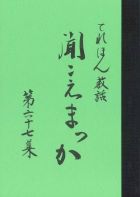 てれほん戯話
聞こえまっか
第六十七集